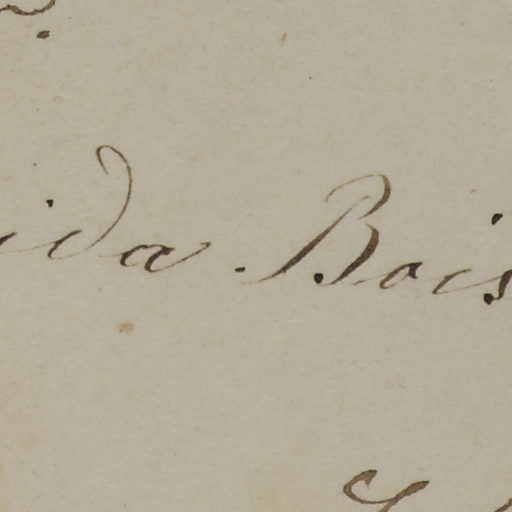 ida Bois